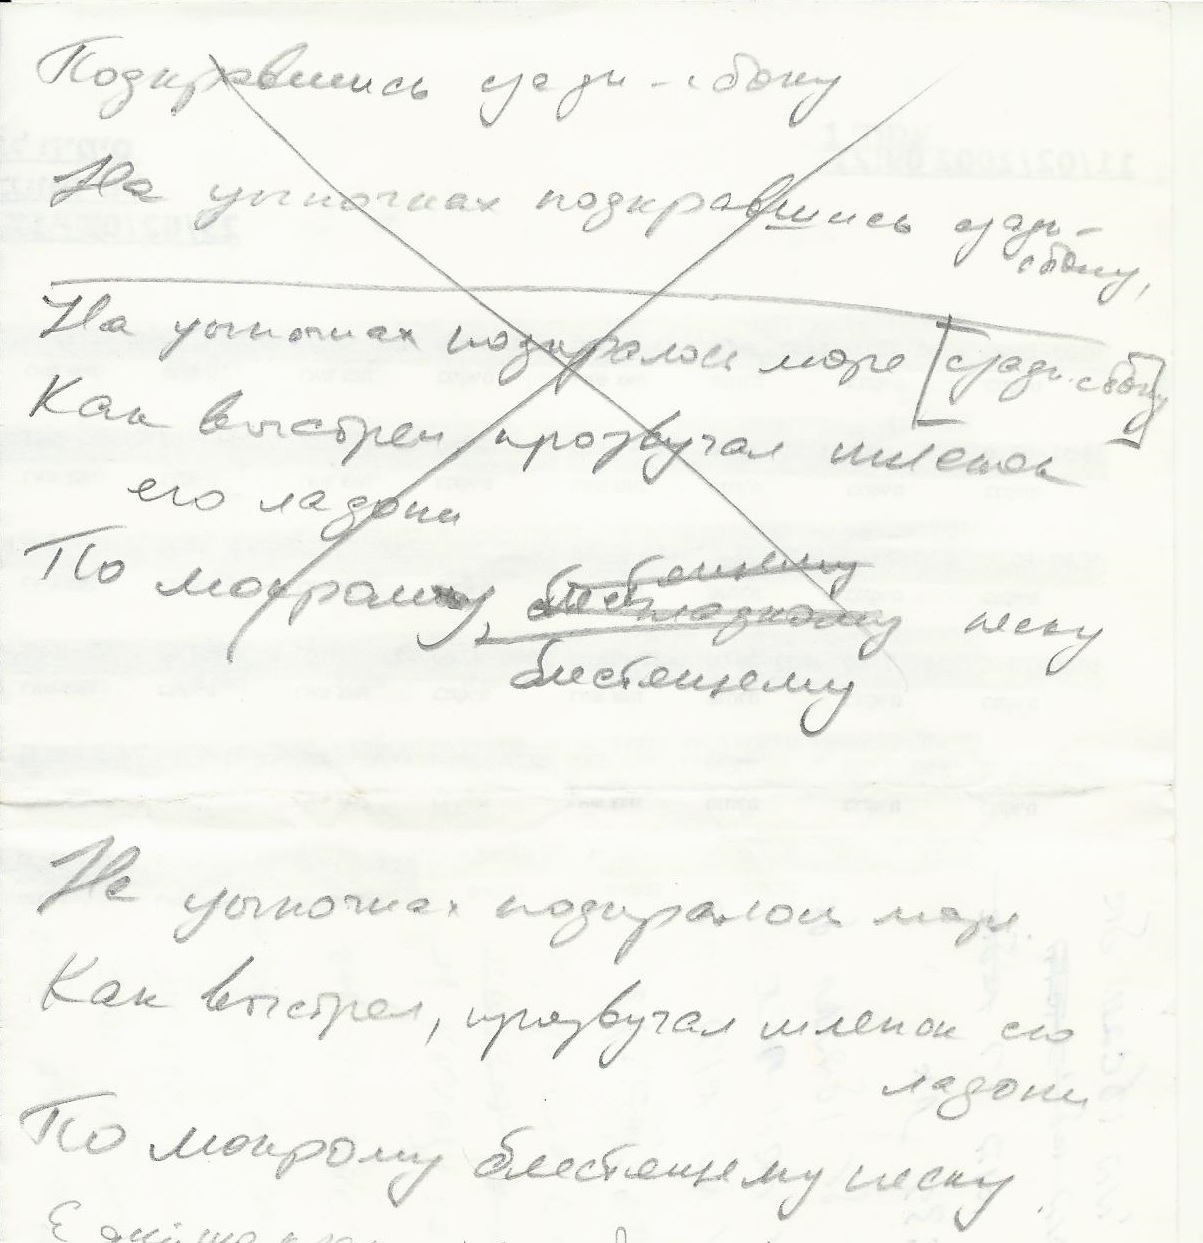 Подкравшись сзади-сбоку
На цыпочках подкравшись сзади-
сбоку,
На цыпочках подкралось море [сзади-сбоку]
Как выстрел прозвучал шлепок
его ладони
По мокрому, гладкому песку
блестящему
На цыпочках подкралось море.
Как выстрел, прозвучал шлепок его
ладони
По мокрому блестящему песку.